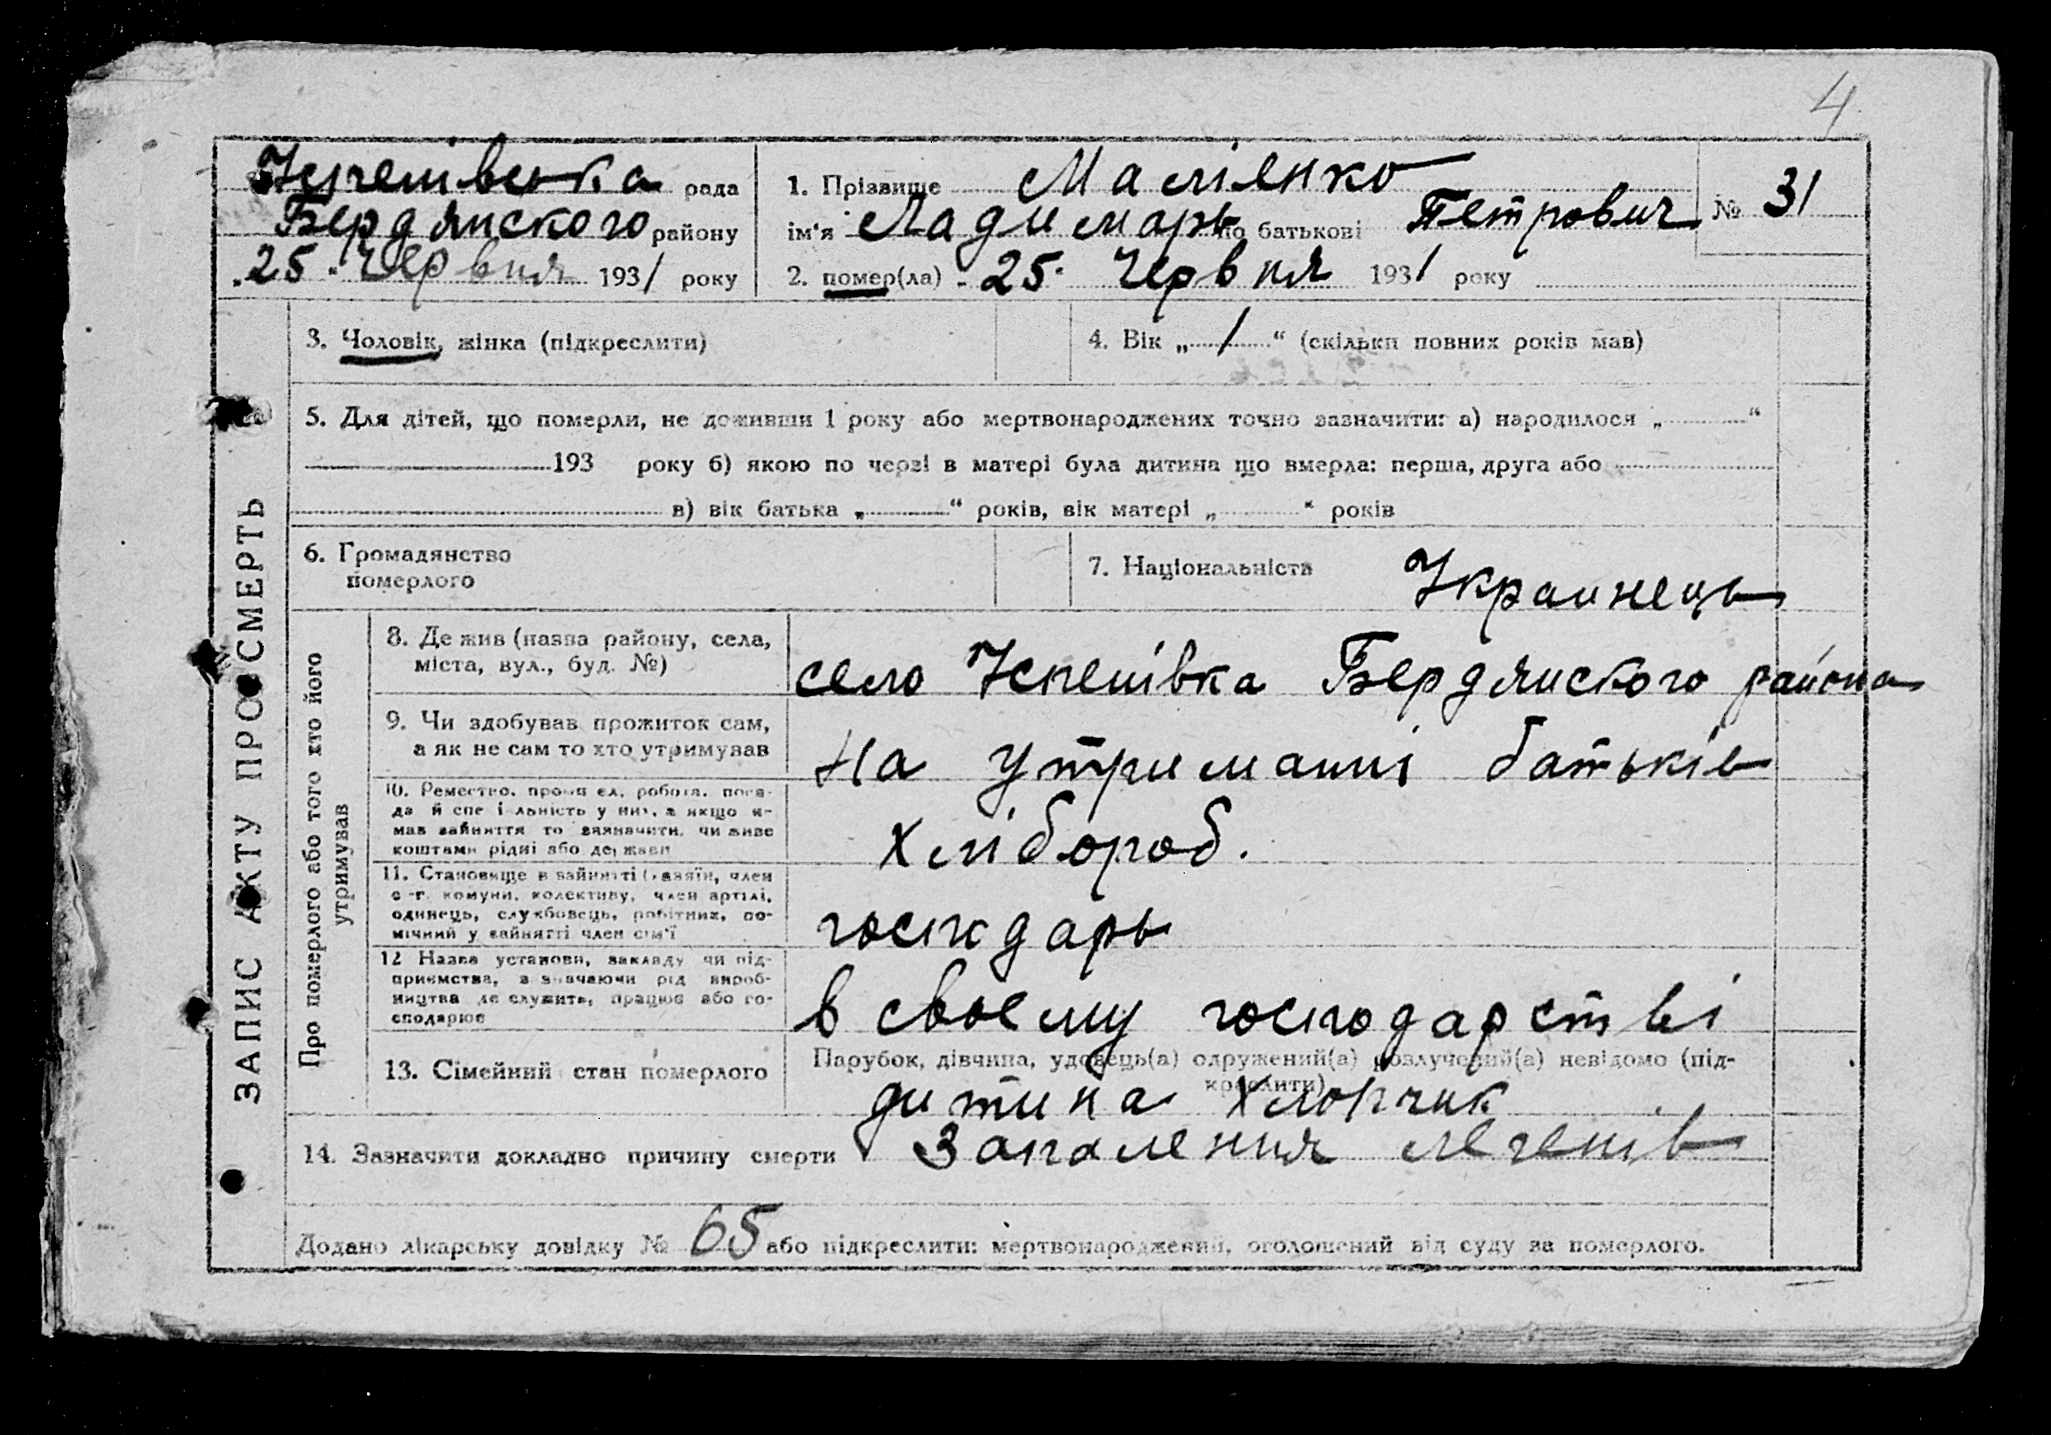 4
Успенівська рада
Бердянского району
25 червня 1931 року
1. Прізвище Маліенко
ім'я Ладимарь по батькові Петрович
№ 31
2. помер(ла) 25 червня 1931 року
3. Чоловік, жінка (підкреслити)
4. Вік „ 1 “ (скільки повних років мав)
5. Для дітей, що померли, не доживши 1 року або мертвонароджених точно зазначити: а) народилося „ “
193 року б) якою по черзі в матері була дитина що вмерла: перша, друга або
в) вік батька „ “ років, вік матері „ “ років
6. Громадянство
померлого
7. Національність Украинець
ЗАПИС АКТУ ПРО СМЕРТЬ
Про померлого або того хто його
утримував
8. Де жив (назва району, села,
міста, вул., буд. №)
село Успенівка Бердянского района
9. Чи здобував прожиток сам,
а як не сам то хто утримував
На утриманні батьків
10. Ремество, робота, поса-
да й спеціальність у них, а якщо н-
мав зайняття то зазначити, чи живе
коштами рідні або держави
Хлібороб.
11. Становище в зайнятті (хазяїн, член
с-г. комуни, колективу, член артілі,
одинець, службовець, робітник, по-
мічний у зайнятті член сім'ї
господарь
12 Назва установи, закладу чи під-
приємства, зазначаючи рід вироб-
ництва де служить, працює або го-
сподарює
в своему господарстві
13. Сімейний стан померлого
Парубок, дівчина, удовець(а) одружений(а) розлучений(а) невідомо (під-
креслити)
дитина хлопчик
14. Зазначити докладно причину смерти Запалення легенів
Додано лікарську довідку № 65 або підкреслити: мертвонароджений, оголошений від суду за померлого.